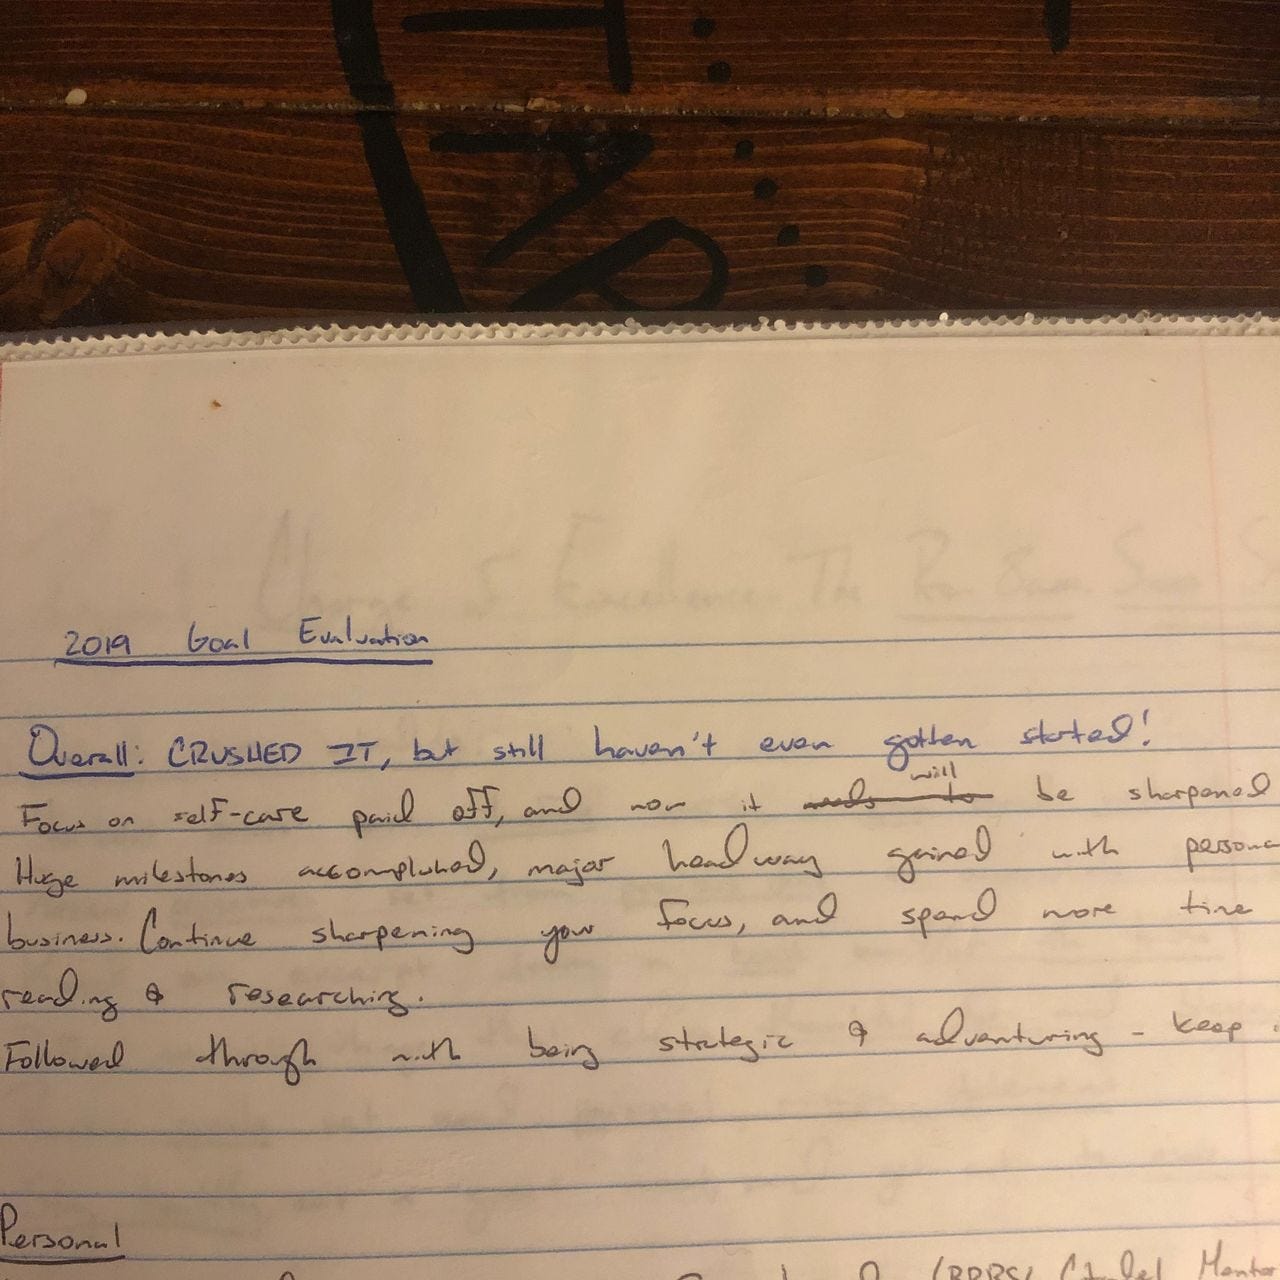 2019 Goal Evaluation
Overall: CRUSHED IT, but still haven't even gotten started!
will
Focus on self-care paid off, and now it needs to be sharpened
Huge milestones accomplished, major headway gained with
business. Continue sharpening your focus, and spend more time
reading & researching.
Followed through with being strategic & adventuring - keep
Personal